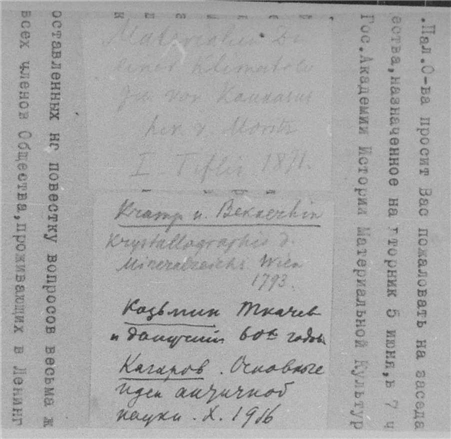 .Пал.О-ва просит Вас пожаловать на заседа
ества,назначенное на вторник 5 июня,в 7 ч
Гос.Академии Истории Материальной Культур
Materialien zu
einer Klimatolo
gie von Kaukasus
von v. Moritz
I Tiflis, 1871.
Kramp u. Bekkerhin
Krystallographie d.
Mineralreichs. Wien
1793.
Козьмин Ткачев
и 60х годов
Кагаров. Основные
идеи античной
науки. Х. 1916
оставленных на повестку вопросов весьма ж
всех членов Общества,проживающих в Ленинг